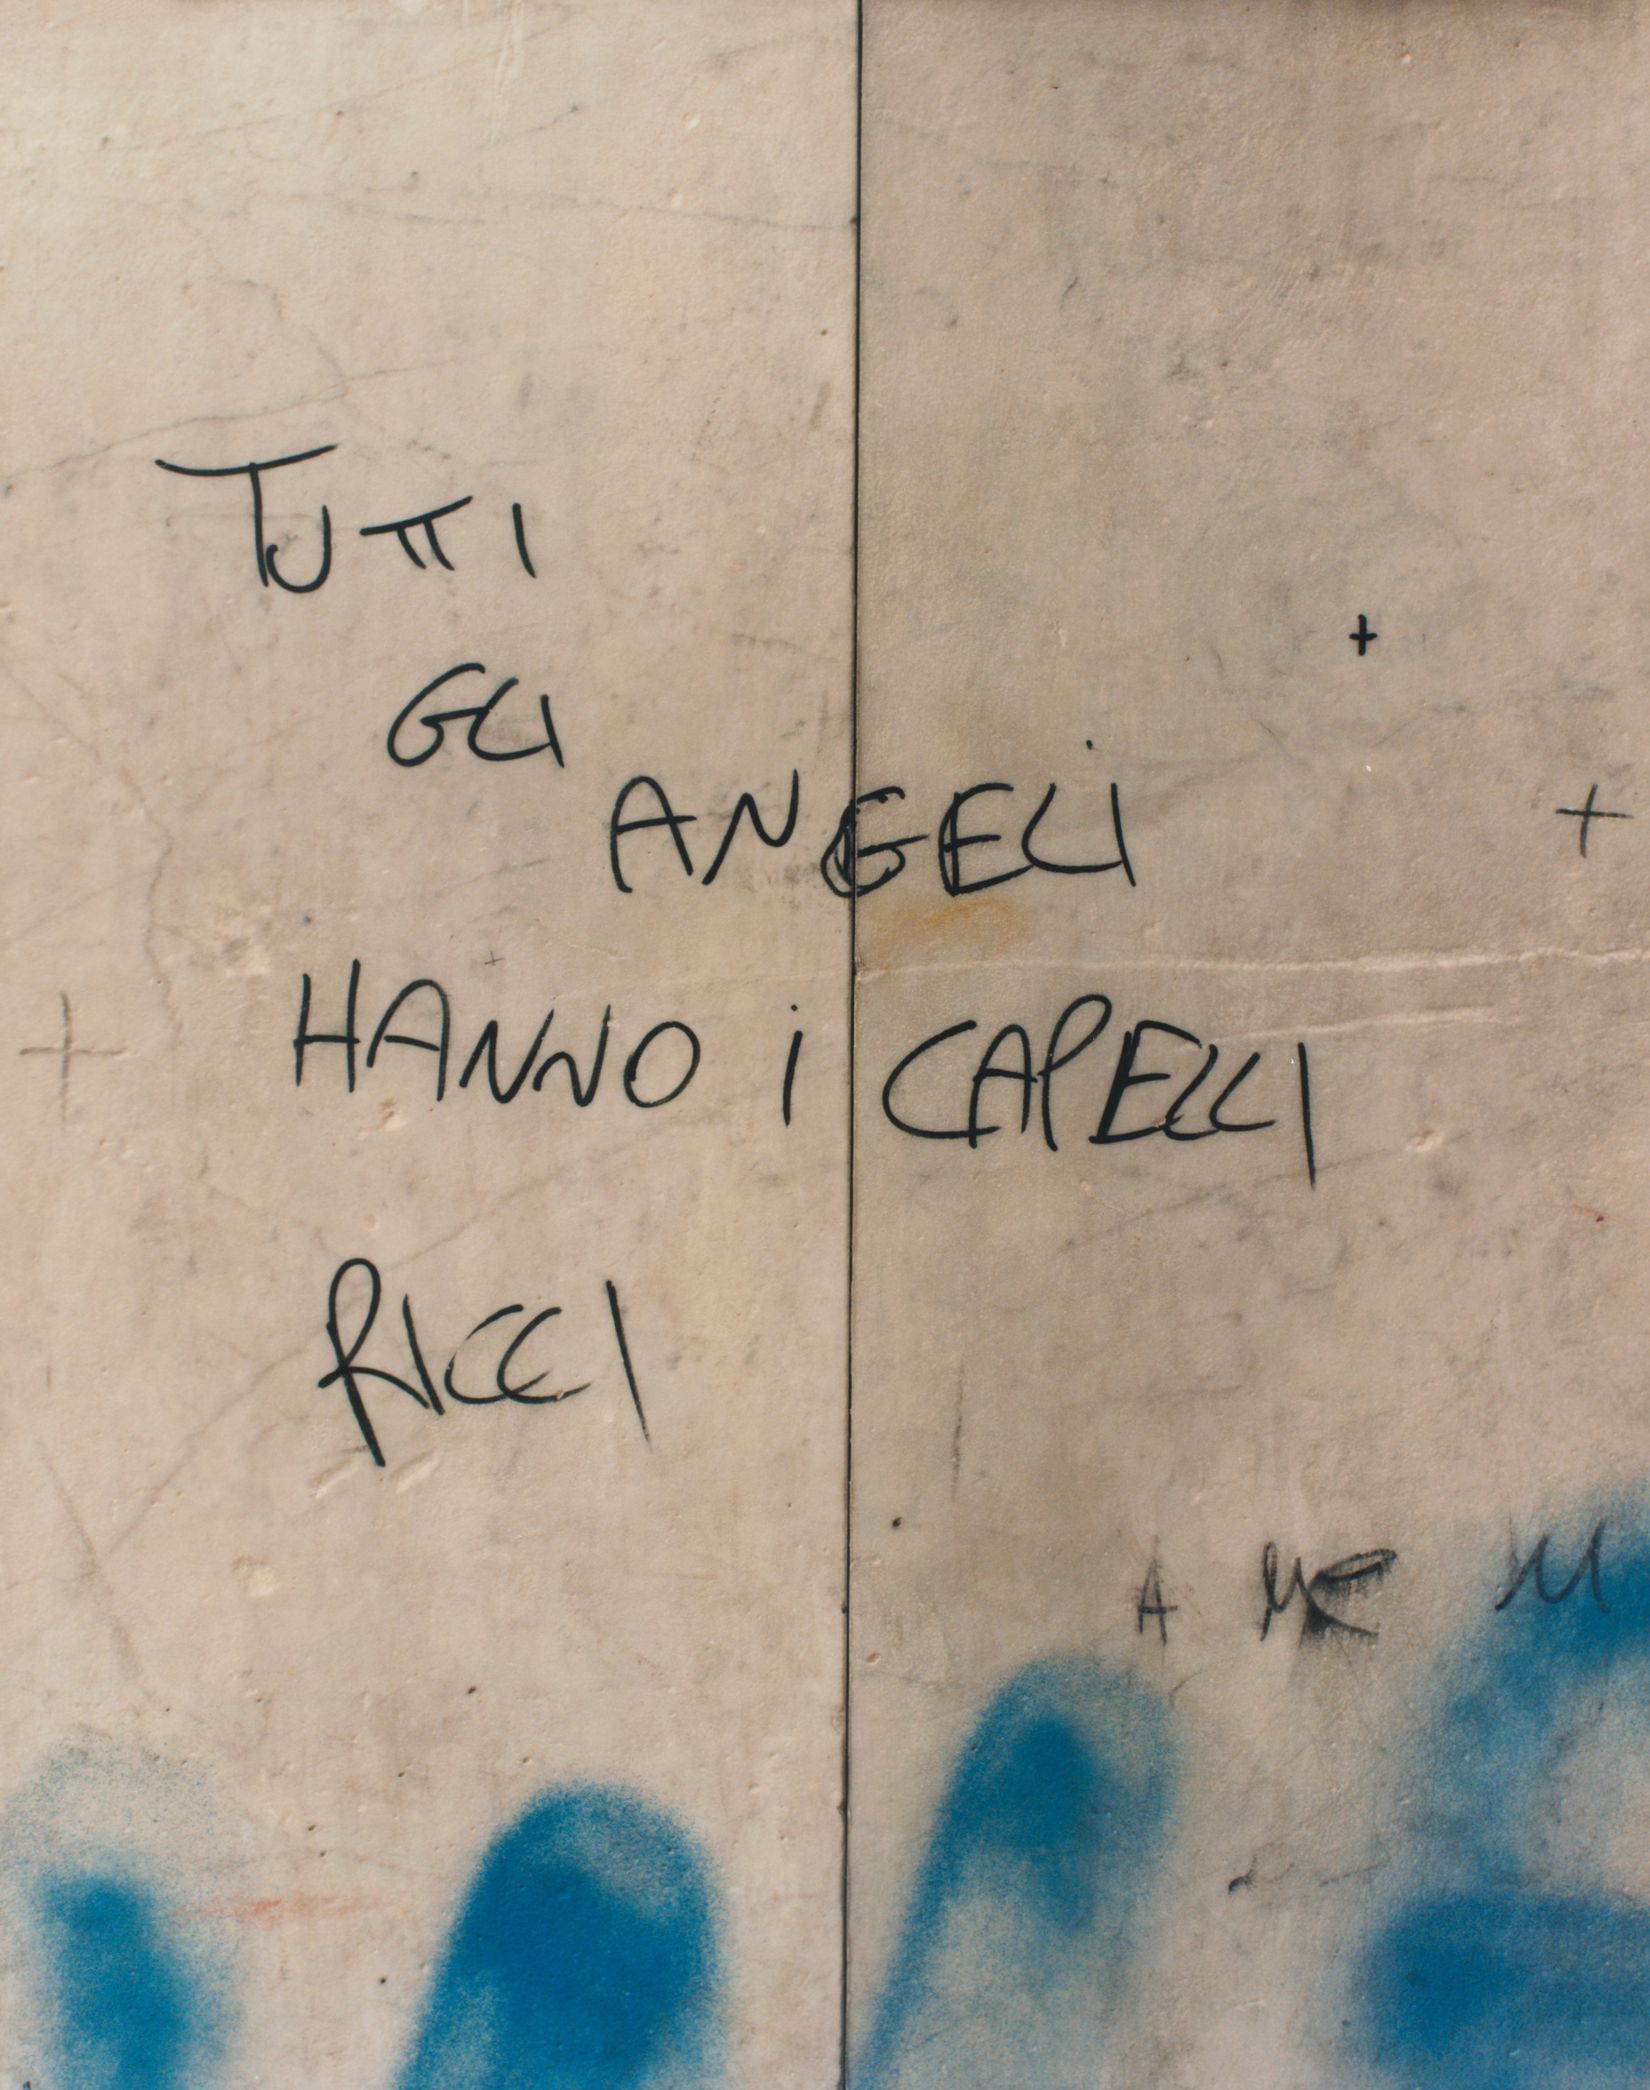 TUTTI
GLI
ANGELI
HANNO i CAPELLI
RICCI
A ME